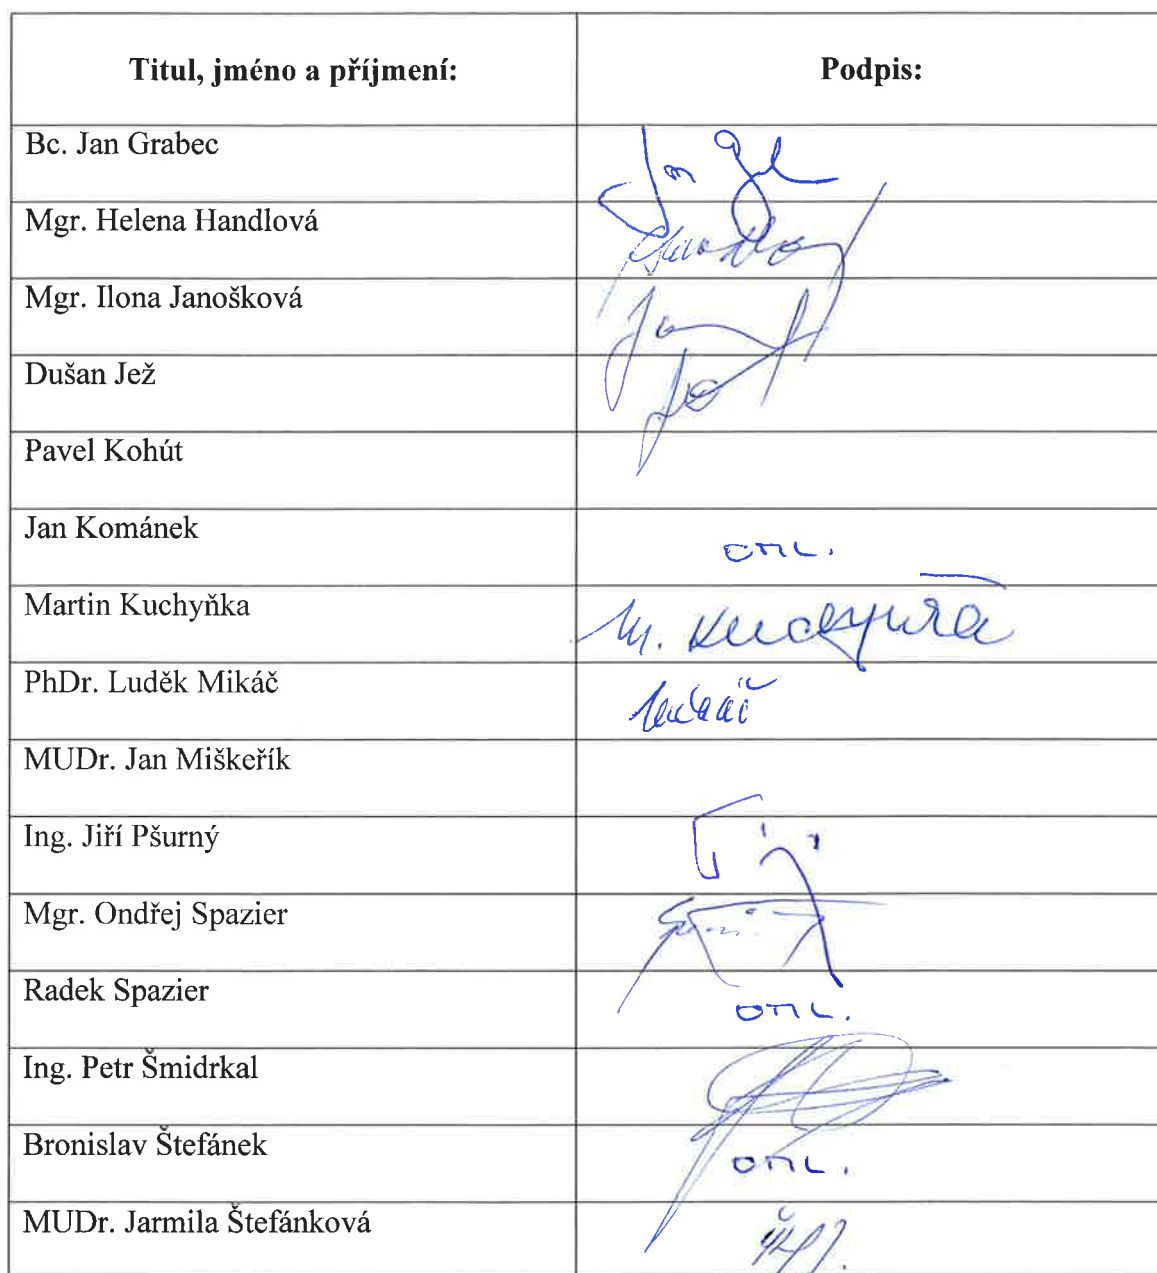 Titul, jméno a příjmení: Podpis:
Bc. Jan Grabec
Mgr. Helena Handlová
Mgr. Ilona Janošková
Dušan Jež
Pavel Kohút
Jan Kománek OML.
Martin Kuchyňka M. Kuchyňka
PhDr. Luděk Mikáč Mikáč
MUDr. Jan Miškeřík
Ing. Jiří Pšurný
Mgr. Ondřej Spazier
Radek Spazier OML.
Ing. Petr Šmidrkal
Bronislav Štefánek OML.
MUDr. Jarmila Štefánková